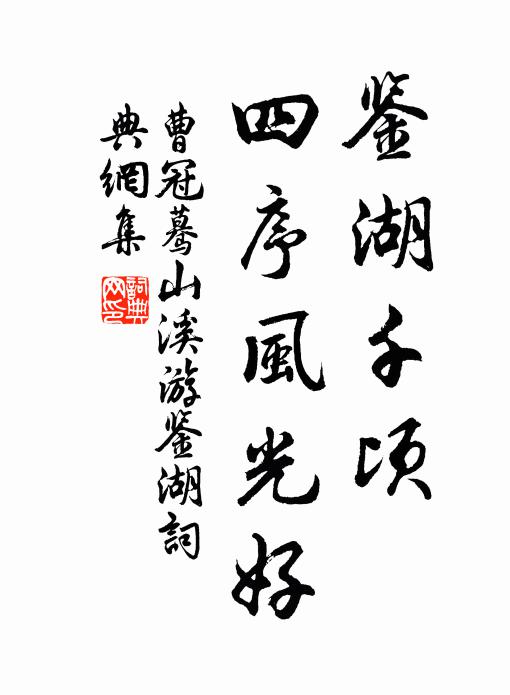 鉴湖千顷
四序風光好
曹冠蓦山溪游鉴湖詞
典網集
詞典网印